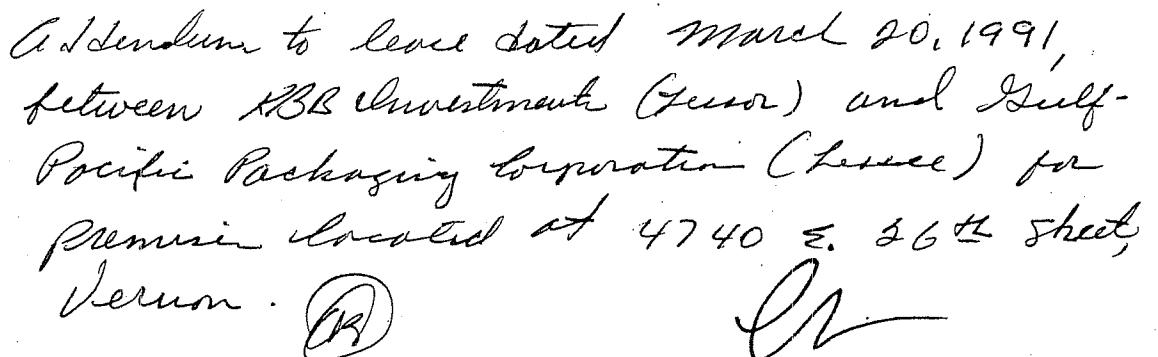 Addendum to lease dated March 20, 1991,
between RBB Investments (Lessor) and Gulf-
Pacific Packaging Corporation (Lessee) for
premises located at 4740 E. 26th Street,
Vernon.